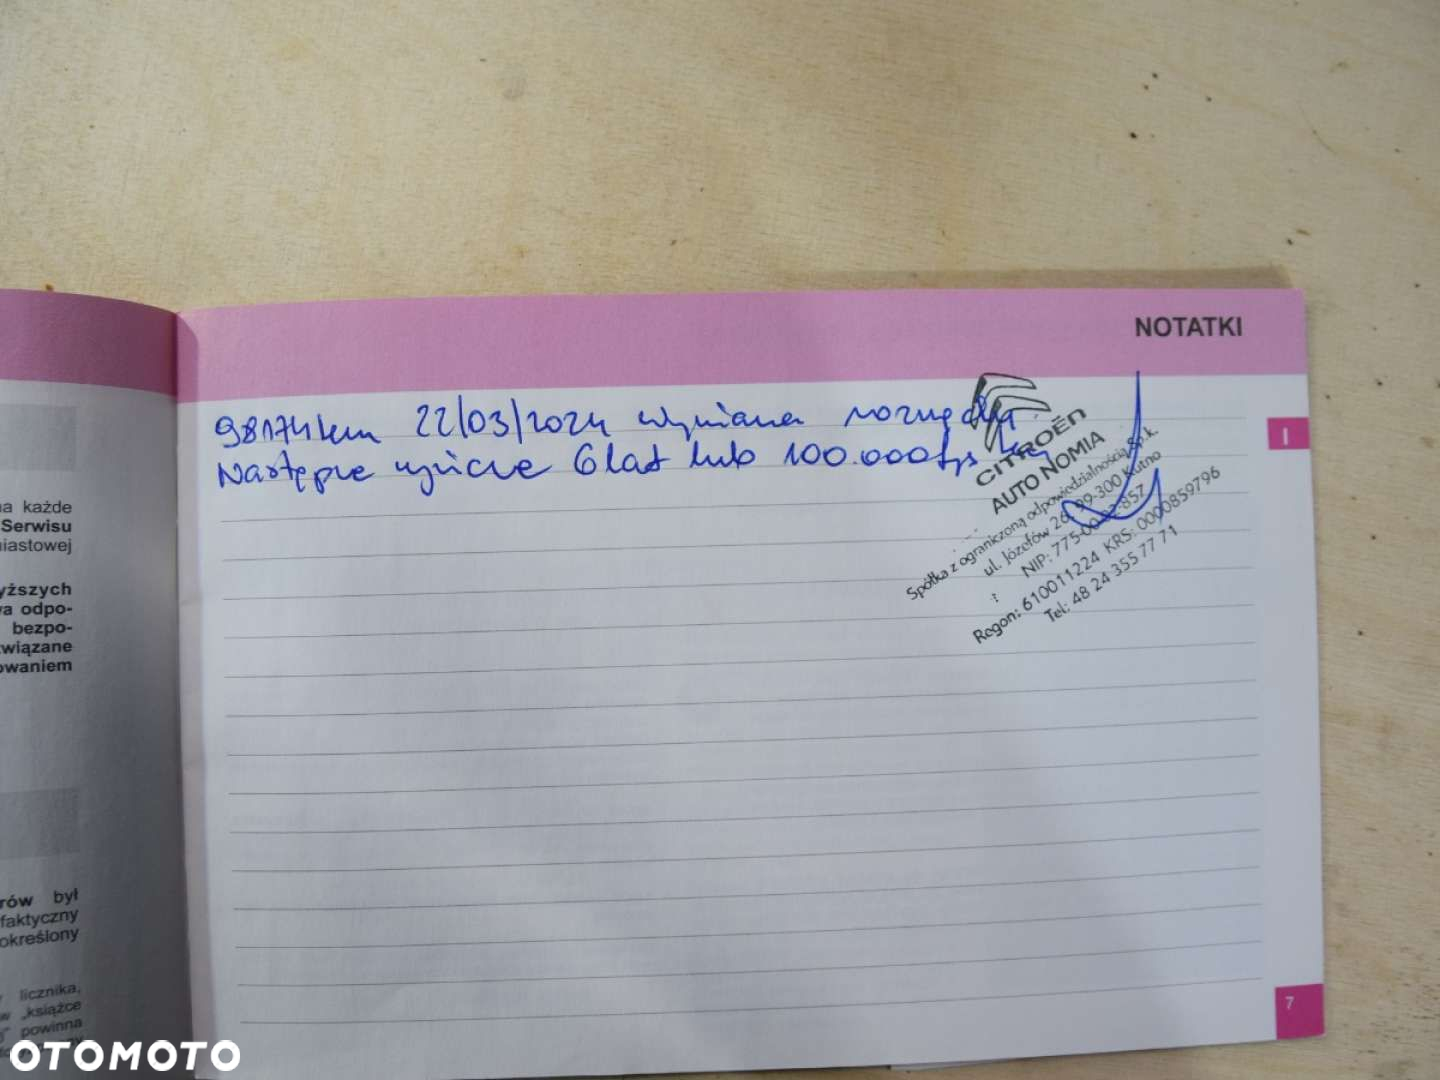 NOTATKI
98174 km 22/03/2024 wymiana rozrządu
Następne 6 lat lub 100.000 tys km
CITROËN
AUTO NOMIA
Spółka z ograniczoną odpowiedzialnością Sp.k.
ul. Józefów 26, 99-300 Kutno
NIP: 775-00-857
Regon: 610011224 KRS: 0000859796
Tel: 48 24 355 77 71
I
7
na każde
Serwisu
niastowej
yższych
va odpo-
bezpo-
związane
owaniem
rów był
faktyczny
określony
licznika,
w „książce
powinna
OTOMOTO